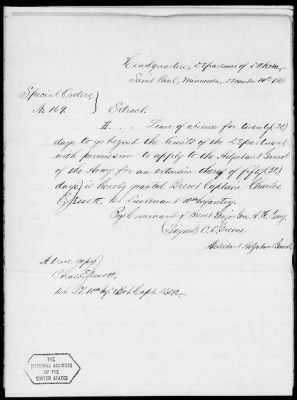 Headquarters, Department of Dakota,
Saint Paul, Minnesota, December 14th
Special Orders
No. 169.
Extract.
II. . . Leave of absence for twenty (20)
days to go beyond the limits of the Department
with permission to apply to the Adjutant General
of the Army for an extension thereof
days is hereby granted Brevet Captain Charles
1st Lieutenant 10th Infantry.
By Command of Brevet Major Gen. A. H. Terry,
(Signed) O. D. Greene
Assistant Adjutant General
A true copy
Chas.
1st Lt. 10th Inf. Bvt Capt. U.S.A.
THE
NATIONAL ARCHIVES
OF THE
UNITED STATES